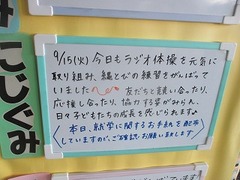 9/15(火)今日もラジオ体操を元気に
取り組み、縄とびの練習をがんばって
いました 友だちと競い合ったり、
応援し合ったり、協力する姿がみられ、
日々子どもたちの成長を感じられます。
本日、就学に関するお手紙を配布
していますので、ご確認お願い致します
こいぐみ